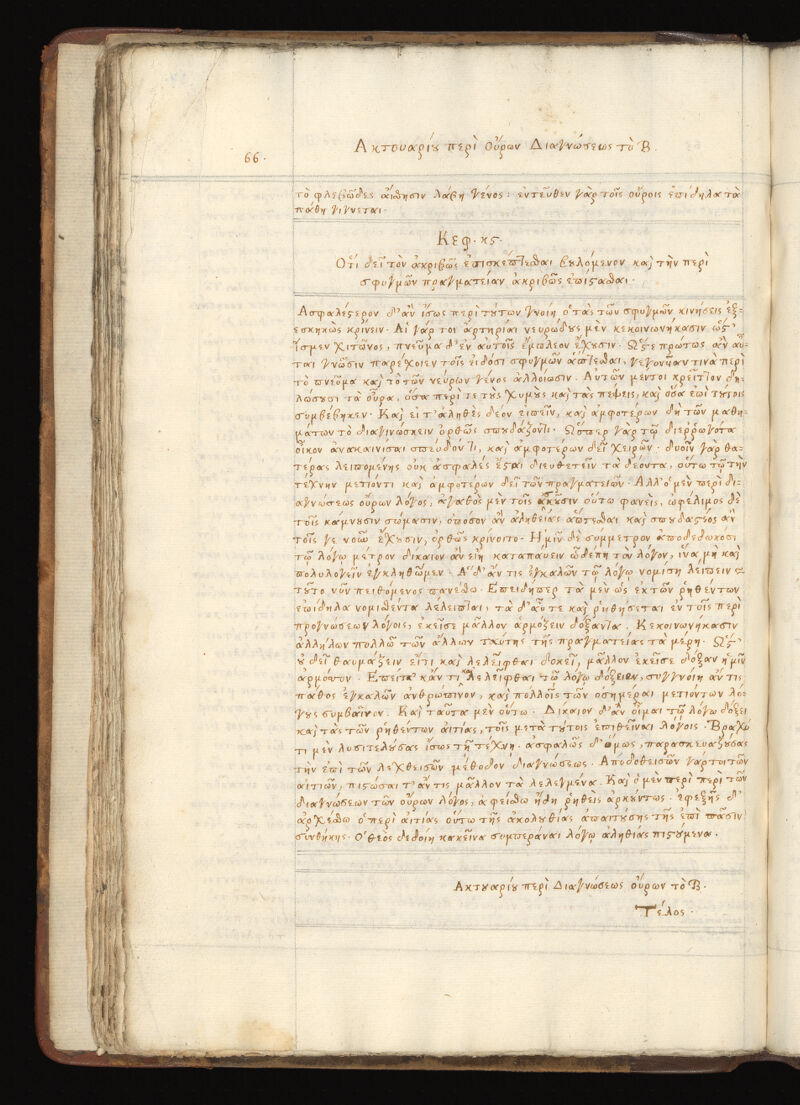 66.
Ακτουαρίου περὶ Οὔρων Διαγνώσεως τὸ Β.
τὸ φλεβῶδες αἴσθησιν λάβῃ γένος: ἐντεῦθεν γὰρ τοῖς οὔροις ἐπίδηλα τὰ
πάθη γίγνεται.
Κεφ. κς.
Ὅτι δεῖ τὸν ἀκριβῶς ἐπισκέπτεσθαι βουλόμενον καὶ τὴν περὶ
σφυγμῶν πραγματείαν ἀκριβῶς ἐπίστασθαι.
Ασφαλέστερον δ' ἂν ἴσως περὶ τούτων γνοίη ὁ τὰς τῶν σφυγμῶν κινήσεις ἐξ-
εσκηκὼς κρίνειν. Αἱ γάρ τοι ἀρτηρίαι νευρώδους μὲν κεκοινωνήκασιν ὥς
ἴσμεν χιτῶνος, πνεῦμα δ' ἐν αὐταῖς ἔμπλεον ἔχουσιν. Ὥστε πρώτως ἂν αὗ-
ται γνῶσιν παρέχοιεν τοῖς εἰδόσι σφυγμῶν ἅπτεσθαι, γεγονυῖαν τινὰ περὶ
τὸ πνεῦμα καὶ τὸ τῶν νεύρων γένος ἀλλοίωσιν. Αὐτῶν μέντοι κρεῖττον δη-
λώσουσι τὰ οὖρα, ὅσα περί τε τοὺς χυμοὺς καὶ τὰς πέψεις, καὶ ὅσα ἐπὶ τούτοις
συμβέβηκεν. Καὶ εἰ τ' ἀληθὲς δέον εἰπεῖν, καὶ ἀμφοτέρων δὴ τῶν μαθη-
μάτων τὸ διαγινώσκειν ὀρθῶς σπουδάζοντι. Ὥσπερ γὰρ τῷ διερρωγότα
οἶκον ἀνακαινίσαι σπεύδοντι, καὶ ἀμφοτέρων δεῖ χειρῶν. δυοῖν γὰρ θα-
τέρας λειπομένης οὐκ ἀσφαλὲς ἔσται διευθετεῖν τὰ δέοντα, οὕτω τῷ τὴν
τέχνην μετιόντι καὶ ἀμφοτέρων δεῖ τῶν πραγματειῶν. Ἀλλ' ὁ μὲν περὶ δι-
αγνώσεως οὔρων λόγος, ἀγαθὸς μὲν τοῖς ἅπασιν οὕτω φανεὶς, ὠφέλιμος δὲ
τοῖς κάμνουσιν σώμασιν, ὁπόσον ἂν ἀληθείας ἅπτεσθαι καὶ σπουδαστέος ἂν
τοῖς γε νοῦν ἔχουσιν, ὀρθῶς κρίνοιτο. Ἡμῖν δὲ σύμμετρον ἀποδεδωκόσι
τῷ λόγῳ μέτρον δίκαιον ἂν εἴη καταπαύειν ὧδέ πη τὸν λόγον, ἵνα μὴ καὶ
πολυλογεῖν ἐγκληθῶμεν. Ἃ δ' ἄν τις ἐγκαλῶν τῷ λόγῳ νομίσῃ λείπειν
τοῦτο νῦν πειθόμενος παυέσθω. Ἐπειδήπερ τὰ μὲν ὡς ἐκ τῶν ῥηθέντων
ἐπίδηλα νομισθέντα λέλειπται, τὰ δ' αὖτε καὶ ῥηθήσεται ἐν τοῖς περὶ
προγνώσεων λόγοις, ἐκεῖσε μᾶλλον ἁρμόζειν δόξαντα. Κεκοινωνήκασιν
ἀλλήλων πολλῷ τῶν ἄλλων ταύτης τῆς πραγματείας τὰ μέρη. Ὥς
οὐ δεῖ θαυμάζειν εἴ τι καὶ λελεῖφθαι δοκεῖ, μᾶλλον ἐκεῖσε δόξαν ἡμῖν
ἁρμόττον. Ἔπειτα κἄν τι λελεῖφθαι τῷ λόγῳ δόξειεν, συγγνοίη ἄν τις
πάθος ἐγκαλῶν ἀνθρώπινον, καὶ πολλοῖς τῶν ὁσημέραι μετιόντων λό-
γους συμβαῖνον. Καὶ ταῦτα μὲν οὕτω. Δίκαιον δ' ἂν οἶμαι τῷ λόγῳ δόξει
καὶ τὰς τῶν ῥηθέντων αἰτίας, τοῖς μετὰ τούτοις ἐπιθεῖναι λόγοις. Βραχύ
τι μὲν λυσιτελούσας ἴσως τῇ τέχνῃ. ἀσφαλῶς δ' ὅμως, παρασκευαζούσας
τὴν ἐπὶ τῶν λεχθεισῶν μέθοδον διαγνώσεως. Ἀποδοθεισῶν γάρ τοι τῶν
αἰτιῶν, πιστώσαι τ' ἄν τις μᾶλλον τὰ λελεγμένα. Καὶ ὁ μὲν περὶ περὶ τῶν
διαγνώσεων τῶν οὔρων λόγος, ἀφείσθω ἤδη ῥηθεὶς ἀρκούντως. ἐφεξῆς δ'
ἀρχέσθω ὁ περὶ αἰτίας οὕτω τῆς ἀκολουθίας ἀπαιτούσης τῆς ἐπὶ πᾶσιν
συνθήκης. Ὁ θεὸς δὲ δοίη κἀκεῖνα συμπεράναι λόγῳ ἀληθίας πιστούμενα.
Ακτουαρίου περὶ Διαγνώσεως οὔρων τὸ Β.
Τέλος.